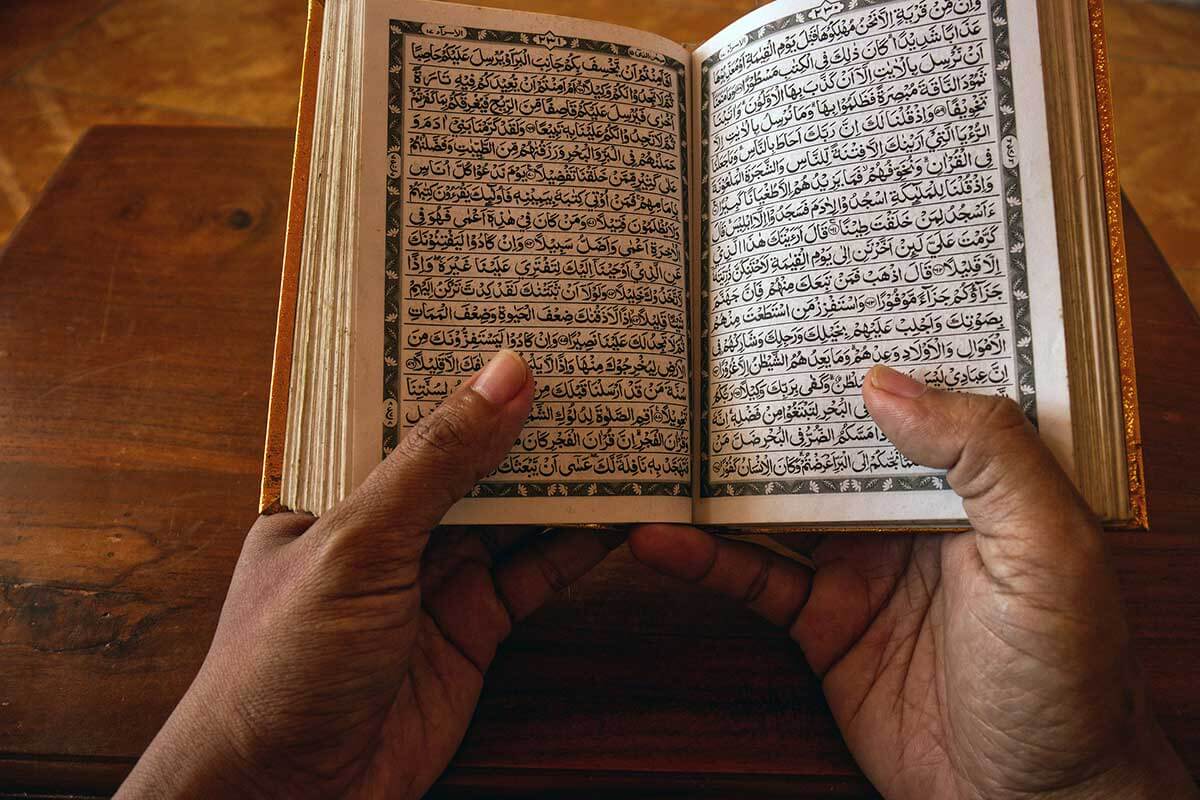 ٢٣٠
وَاِنْ مِّنْ قَرْيَةٍ اِلَّا نَحْنُ مُهْلِكُوْهَا قَبْلَ يَوْمِ الْقِيٰمَةِ اَوْ مُعَذِّبُوْهَا
عَذَابًا شَدِيْدًا ؕ كَانَ ذٰلِكَ فِى الْكِتٰبِ مَسْطُوْرًا ﴿٥٨﴾ وَمَا مَنَعَنَاۤ
اَنْ نُّرْسِلَ بِالْاٰيٰتِ اِلَّاۤ اَنْ كَذَّبَ بِهَا الْاَوَّلُوْنَ ؕ وَاٰتَيْنَا
ثَمُوْدَ النَّاقَةَ مُبْصِرَةً فَظَلَمُوْا بِهَا ؕ وَمَا نُرْسِلُ بِالْاٰيٰتِ اِلَّا
تَخْوِيْفًا ﴿٥٩﴾ وَاِذْ قُلْنَا لَكَ اِنَّ رَبَّكَ اَحَاطَ بِالنَّاسِ ؕ وَمَا جَعَلْنَا
الرُّءْيَا الَّتِىْۤ اَرَيْنٰكَ اِلَّا فِتْنَةً لِّلنَّاسِ وَالشَّجَرَةَ الْمَلْعُوْنَةَ
فِى الْقُرْاٰنِ ؕ وَنُخَوِّفُهُمْ ۙ فَمَا يَزِيْدُهُمْ اِلَّا طُغْيَانًا كَبِيْرًا
وَاِذْ قُلْنَا لِلْمَلٰٓئِكَةِ اسْجُدُوْا لِاٰدَمَ فَسَجَدُوْۤا اِلَّاۤ اِبْلِيْسَ ؕ قَالَ
ءَاَسْجُدُ لِمَنْ خَلَقْتَ طِيْنًا ﴿٦١﴾ قَالَ اَرَءَيْتَكَ هٰذَا الَّذِىْ
كَرَّمْتَ عَلَىَّ لَئِنْ اَخَّرْتَنِ اِلٰى يَوْمِ الْقِيٰمَةِ لَاَحْتَنِكَنَّ ذُرِّيَّتَهٗۤ
اِلَّا قَلِيْلًا ﴿٦٢﴾ قَالَ اذْهَبْ فَمَنْ تَبِعَكَ مِنْهُمْ فَاِنَّ جَهَنَّمَ
جَزَآؤُكُمْ جَزَآءً مَّوْفُوْرًا ﴿٦٣﴾ وَاسْتَفْزِزْ مَنِ اسْتَطَعْتَ مِنْهُمْ
بِصَوْتِكَ وَاَجْلِبْ عَلَيْهِمْ بِخَيْلِكَ وَرَجِلِكَ وَشَارِكْهُمْ فِى
الْاَمْوَالِ وَالْاَوْلَادِ وَعِدْهُمْ ؕ وَمَا يَعِدُهُمُ الشَّيْطٰنُ اِلَّا غُرُوْرًا
اِنَّ عِبَادِىْ لَيْسَ سُلْطٰنٌ ؕ وَكَفٰى بِرَبِّكَ وَكِيْلًا ﴿٦٥﴾ رَبُّكُمُ
فِى الْبَحْرِ لِتَبْتَغُوْا مِنْ فَضْلِهٖ ؕ اِنَّهٗ
مَسَّكُمُ الضُّرُّ فِى الْبَحْرِ ضَلَّ مَنْ
نَجّٰىكُمْ اِلَى الْبَرِّ اَعْرَضْتُمْ ؕ وَكَانَ الْاِنْسَانُ كَفُوْرًا
٢٣١
اَفَاَمِنْتُمْ اَنْ يَّخْسِفَ بِكُمْ جَانِبَ الْبَرِّ اَوْ يُرْسِلَ عَلَيْكُمْ حَاصِبًا
ثُمَّ لَا تَجِدُوْا لَكُمْ وَكِيْلًا ﴿٦٨﴾ اَمْ اَمِنْتُمْ اَنْ يُّعِيْدَكُمْ فِيْهِ تَارَةً
اُخْرٰى فَيُرْسِلَ عَلَيْكُمْ قَاصِفًا مِّنَ الرِّيْحِ فَيُغْرِقَكُمْ بِمَا كَفَرْتُمْ
ثُمَّ لَا تَجِدُوْا لَكُمْ عَلَيْنَا بِهٖ تَبِيْعًا ﴿٦٩﴾ وَلَقَدْ كَرَّمْنَا بَنِىْۤ اٰدَمَ وَ
حَمَلْنٰهُمْ فِى الْبَرِّ وَالْبَحْرِ وَرَزَقْنٰهُمْ مِّنَ الطَّيِّبٰتِ وَفَضَّلْنٰهُمْ
عَلٰى كَثِيْرٍ مِّمَّنْ خَلَقْنَا تَفْضِيْلًا ﴿٧٠﴾ يَوْمَ نَدْعُوْا كُلَّ اُنَاسٍۭ
بِاِمَامِهِمْ ۚ فَمَنْ اُوْتِىَ كِتٰبَهٗ بِيَمِيْنِهٖ فَاُولٰٓئِكَ يَقْرَءُوْنَ كِتٰبَهُمْ
وَلَا يُظْلَمُوْنَ فَتِيْلًا ﴿٧١﴾ وَمَنْ كَانَ فِىْ هٰذِهٖۤ اَعْمٰى فَهُوَ فِى
الْاٰخِرَةِ اَعْمٰى وَاَضَلُّ سَبِيْلًا ﴿٧٢﴾ وَاِنْ كَادُوْا لَيَفْتِنُوْنَكَ
عَنِ الَّذِىْۤ اَوْحَيْنَاۤ اِلَيْكَ لِتَفْتَرِىَ عَلَيْنَا غَيْرَهٗ ۖ وَاِذًا
لَّاتَّخَذُوْكَ خَلِيْلًا ﴿٧٣﴾ وَلَوْلَاۤ اَنْ ثَبَّتْنٰكَ لَقَدْ كِدْتَّ تَرْكَنُ اِلَيْهِمْ
شَيْئًا قَلِيْلًا ﴿٧٤﴾ اِذًا لَّاَذَقْنٰكَ ضِعْفَ الْحَيٰوةِ وَضِعْفَ الْمَمَاتِ
ثُمَّ لَا تَجِدُ لَكَ عَلَيْنَا نَصِيْرًا ﴿٧٥﴾ وَاِنْ كَادُوْا لَيَسْتَفِزُّوْنَكَ مِنَ
الْاَرْضِ لِيُخْرِجُوْكَ مِنْهَا وَاِذًا لَّا اِلَّا قَلِيْلًا
سُنَّةَ مَنْ قَدْ اَرْسَلْنَا قَبْلَكَ مِنْ لِسُنَّتِنَا
تَحْوِيْلًا ﴿٧٧﴾ اَقِمِ الصَّلٰوةَ لِدُلُوْكِ الشَّمْسِ الَّيْلِ
وَقُرْاٰنَ الْفَجْرِ ؕ اِنَّ قُرْاٰنَ الْفَجْرِ كَانَ
فَتَهَجَّدْ بِهٖ نَافِلَةً لَّكَ ۖ عَسٰۤى اَنْ يَّبْعَثَكَ